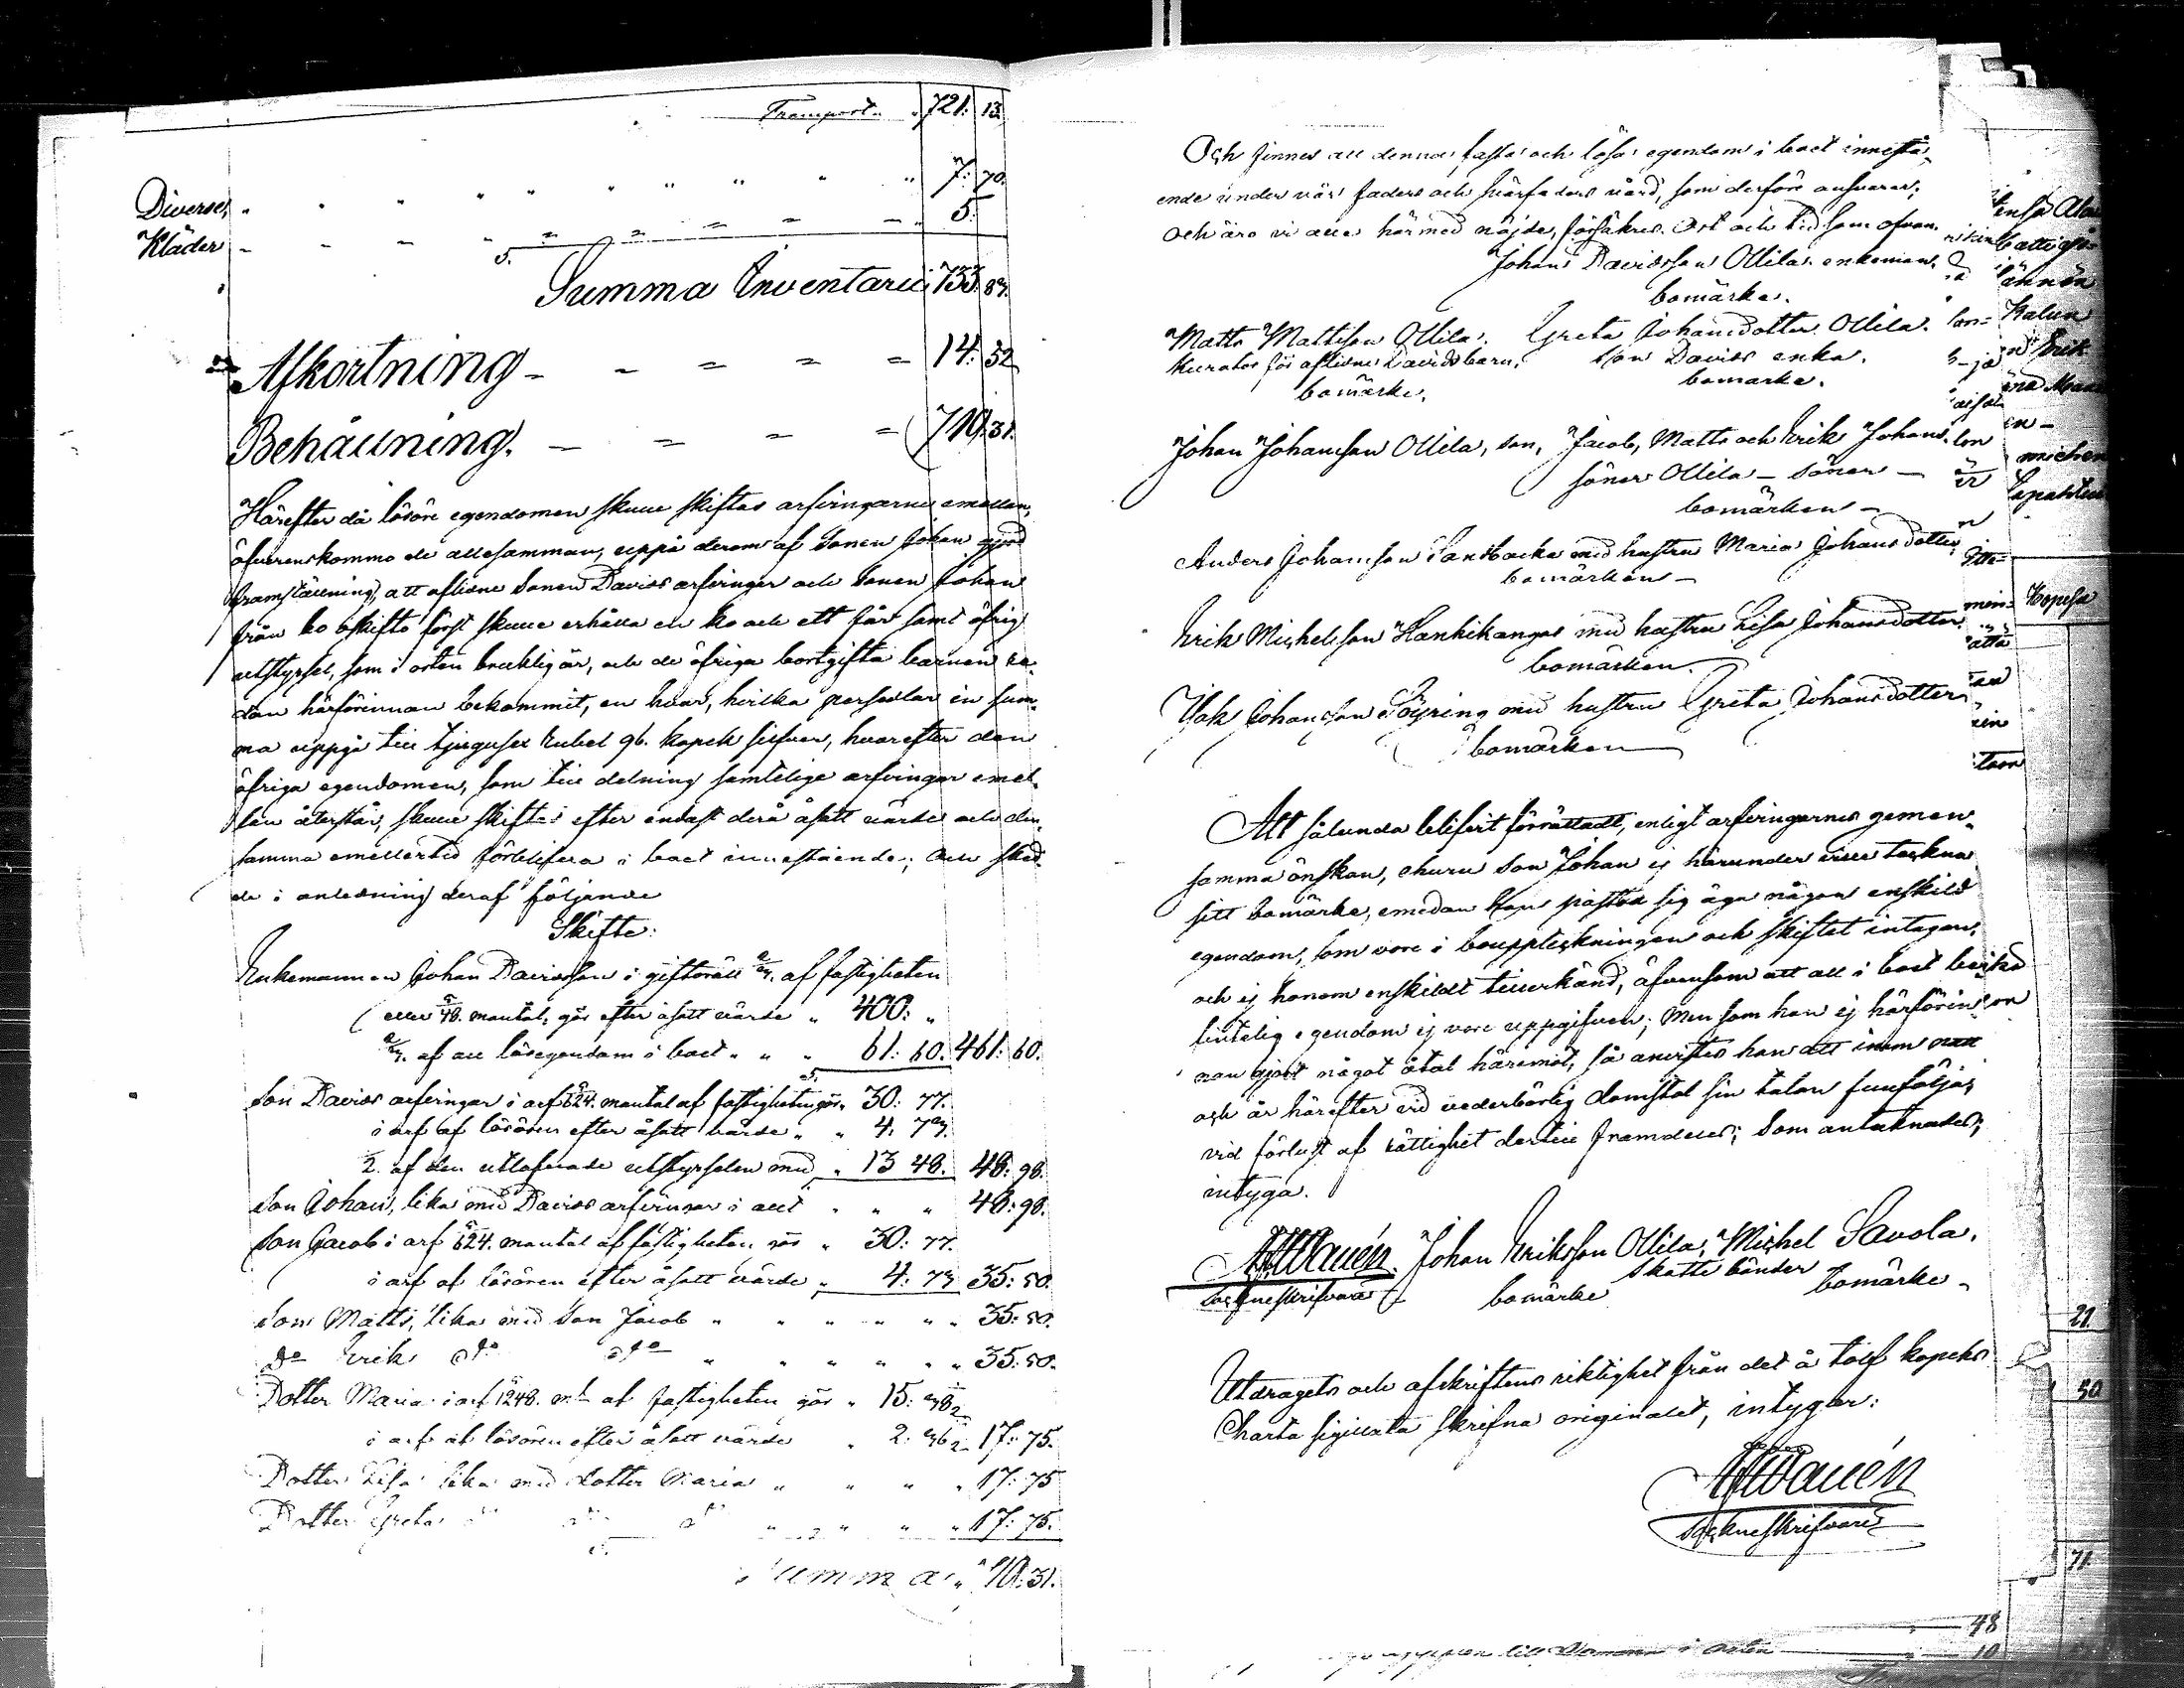 Transport " 721: 13.
Diverse, " " " " " " " " " 7: 70.
Kläder - - - - - - - - - 5.
S.
Summa Inventarii 733. 83.
Afkortning - - - - - 14: 52
Behållning. - - - - 719: 31.
Härefter då lösöre egendomen skulle skiftas arfvingarne emellan,
öfverenskommo de allesamman, uppå derom af Sonen Johan gjord
framställning, att aflidne Sonen Davids arfvingar och Sonen Johan
från bo oskifto först skulle erhålla en ko och ett får samt öfrig
utstyrsel, som i orten bruklig är, och de öfriga bortgifta barnen re-
dan härförinnan bekommit, en hvar, hvilka persedlar in sum-
ma uppgå till tjugusex Rubel 96. kopek silfver, hvarefter den
öfriga egendomen, som till delning samtelige arfvingar emel-
lan återstår, skulle skiftas efter endast derå åsatt värde och den-
samma emellertid förblifva i boet innestående; Och sked-
de i anledning deraf följande
Skifte:
Enkemannen Johan Davidsson i giftorätt 2/3. af fastigheten
eller 5/48. mantal, gör efter åsatt värde " 400: "
2/3. af all lösegendom i boet " " " 61: 60. 461: 60.
Son Davids arfvingar i arf 5/624. mantal af fastigheten gör " 30: 77.
i arf af lösören efter åsatt värde " " 4: 73.
1/2. af den utlofvade utstyrseln med " 13 48. 48: 98.
Son Johan, lika med Davids arfvingar i allt " " " 48: 98.
Son Jacob i arf 5/624. mantal af fastigheten gör " 30: 77.
i arf af lösören efter åsatt värde " 4: 73 35: 50.
Son Matts, lika med Son Jacob " " " " " " 35: 50.
do Erik do do " " " " " " 35: 50.
Dotter Maria i arf 5/1248. ml af fastigheten gör " 15: 38 1/2
i arf af lösören efter åsatt värde " 2: 36 1/2 17: 75.
Dotter Lisa lika med dotter Maria " " " " 17: 75
Dotter Greta do do do " " " " 17: 75.
Summa " 719: 31.
Och finnes all denna, fasta och lösa egendom i boet innestå-
ende under vår faders och svärfaders vård, som derföre ansvarar;
och äro vi alla härmed nöjde, försäkras. Ort och tid som ofvan.
Johan Davidsson Ollila. enkeman.
bomärke.
Matts Mattsson Ollila. Greta Johansdotter Ollila.
Kurator för aflidne Davids barn, Son Davids enka.
bomärke. bomärke.
Johan Johansson Ollila, son, Jacob, Matts och Erik Johans-
söner Ollila - söner -
bomärken -
Anders Johansson Sandbacka med hustru Maria Johansdotter,
bomärken -
Erik Michelsson Kankikangas med hustru Lisa Johansdotter
bomärken.
Isak Johansson Töyring med hustru Greta Johansdotter
bomärken
Att sålunda blifvit förrättadt, enligt arfvingarnes gemen-
samma önskan, ehuru son Johan ej härunder ville teckna
sitt bomärke, emedan han påstod sig äga någon enskild
egendom, som vore i bouppteckningen och skiftet intagen,
och ej honom enskildt tillerkänd, äfvensom att all i boet befint-
lig egendom ej vore uppgifven; Men som han ej härförin-
nan gjort något åtal häremot, så anvistes han att inom natt
och år härefter vid vederbörlig domstol sin talan fullfölja,
vid förlust af rättighet dertill framdeles; Som antecknades,
intyga.
AWauén. Johan Eriksson Ollila, Michel Savola.
Sockneskrifvare bomärke Skattebönder bomärke -
Utdragets och afskriftens riktighet från det å tolf kopeks
Charta sigillata skrifna originalet, intygar:
AWauén
Sockneskrifvare
Kopeka
21.
50
71
48
10